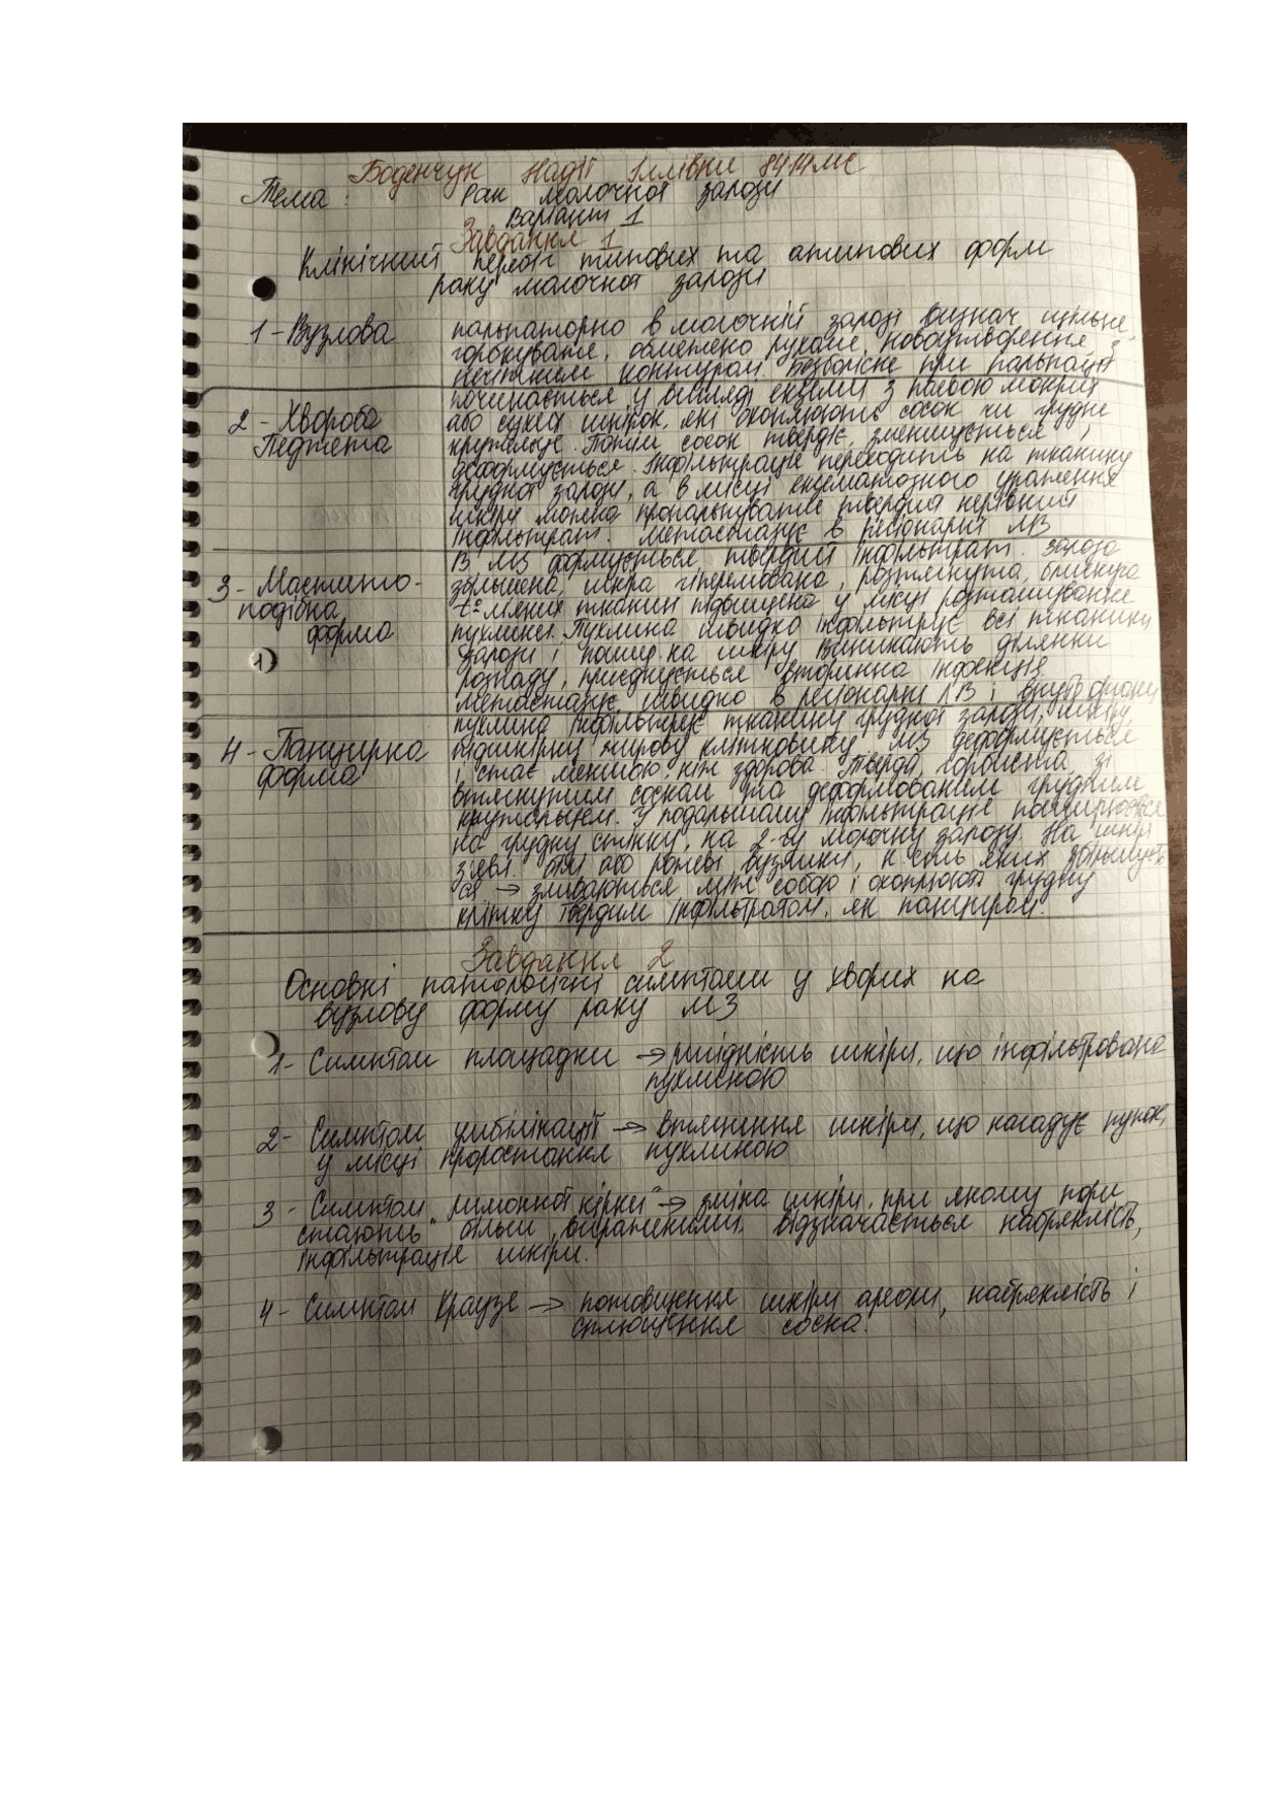 Боденчук Надії Іллівни 8414мс
Тема : Рак молочної залози
Варіант 1
Завдання 1
Клінічний перебіг типових та атипових форм
раку молочної залози
1 - Вузлова
пальпаторно в молочній залозі визнач щільне,
горбкувате, обмежено рухоме новоутворення з
нечітким контуром. Безболісне при пальпації
2 - Хвороба
Педжета
починається у вигляді екземи з появою мокрих
або сухих шкірок, які охоплюють сосок чи грудне
кружальце. Потім сосок твердіє, зменшується і
деформується. Інфільтрація переходить на тканину
грудної залози, а в місці екзематозного ураження
шкіри можна пропальпувати твердий нерівний
інфільтрат. Метастазує в регіонарні ЛВ
3 - Мастито-
подібна
форма
В МЗ формується твердий інфільтрат. Залоза
збільшена, шкіра гіперемована, розтягнута, блискуча
t° м'яких тканин підвищена у місці розташування
пухлини. Пухлина швидко інфільтрує всі тканини
залози і пошир. на шкіру виникають ділянки
розпаду, приєднується вторинна інфекція
метастазує швидко в регіонарні ЛВ і внутр органи
4 - Панцирна
форма
пухлина інфільтрує тканину грудної залози, шкіру,
підшкірну жирову клітковину. МЗ деформується
і стає меншою, ніж здорова. Тверда, горбиста зі
втягнутим соском та деформованим грудним
кружальцем. У подальшому інфільтрація поширюється
на грудну стінку, на 2-гу молочну залозу. На шкірі
з'явл. білі або рожеві вузлики, к-сть яких збільшуєть
ся → зливаються між собою і охоплюють грудну
клітку твердим інфільтратом, як панциром.
Завдання 2
Основні патологічні симптоми у хворих на
вузлову форму раку МЗ
1- Симптом площадки → ригідність шкіри, що інфільтрована
пухлиною
2- Симптом умбілікації → втягнення шкіри, що нагадує пупок,
у місці проростання пухлиною
3 - Симптом „лимонної кірки" → зміна шкіри, при якому пори
стають більш вираженими. Відзначається набряклість,
інфільтрація шкіри.
4- Симптом Краузе → потовщення шкіри ареоли, набряклість і
сплющення соска.